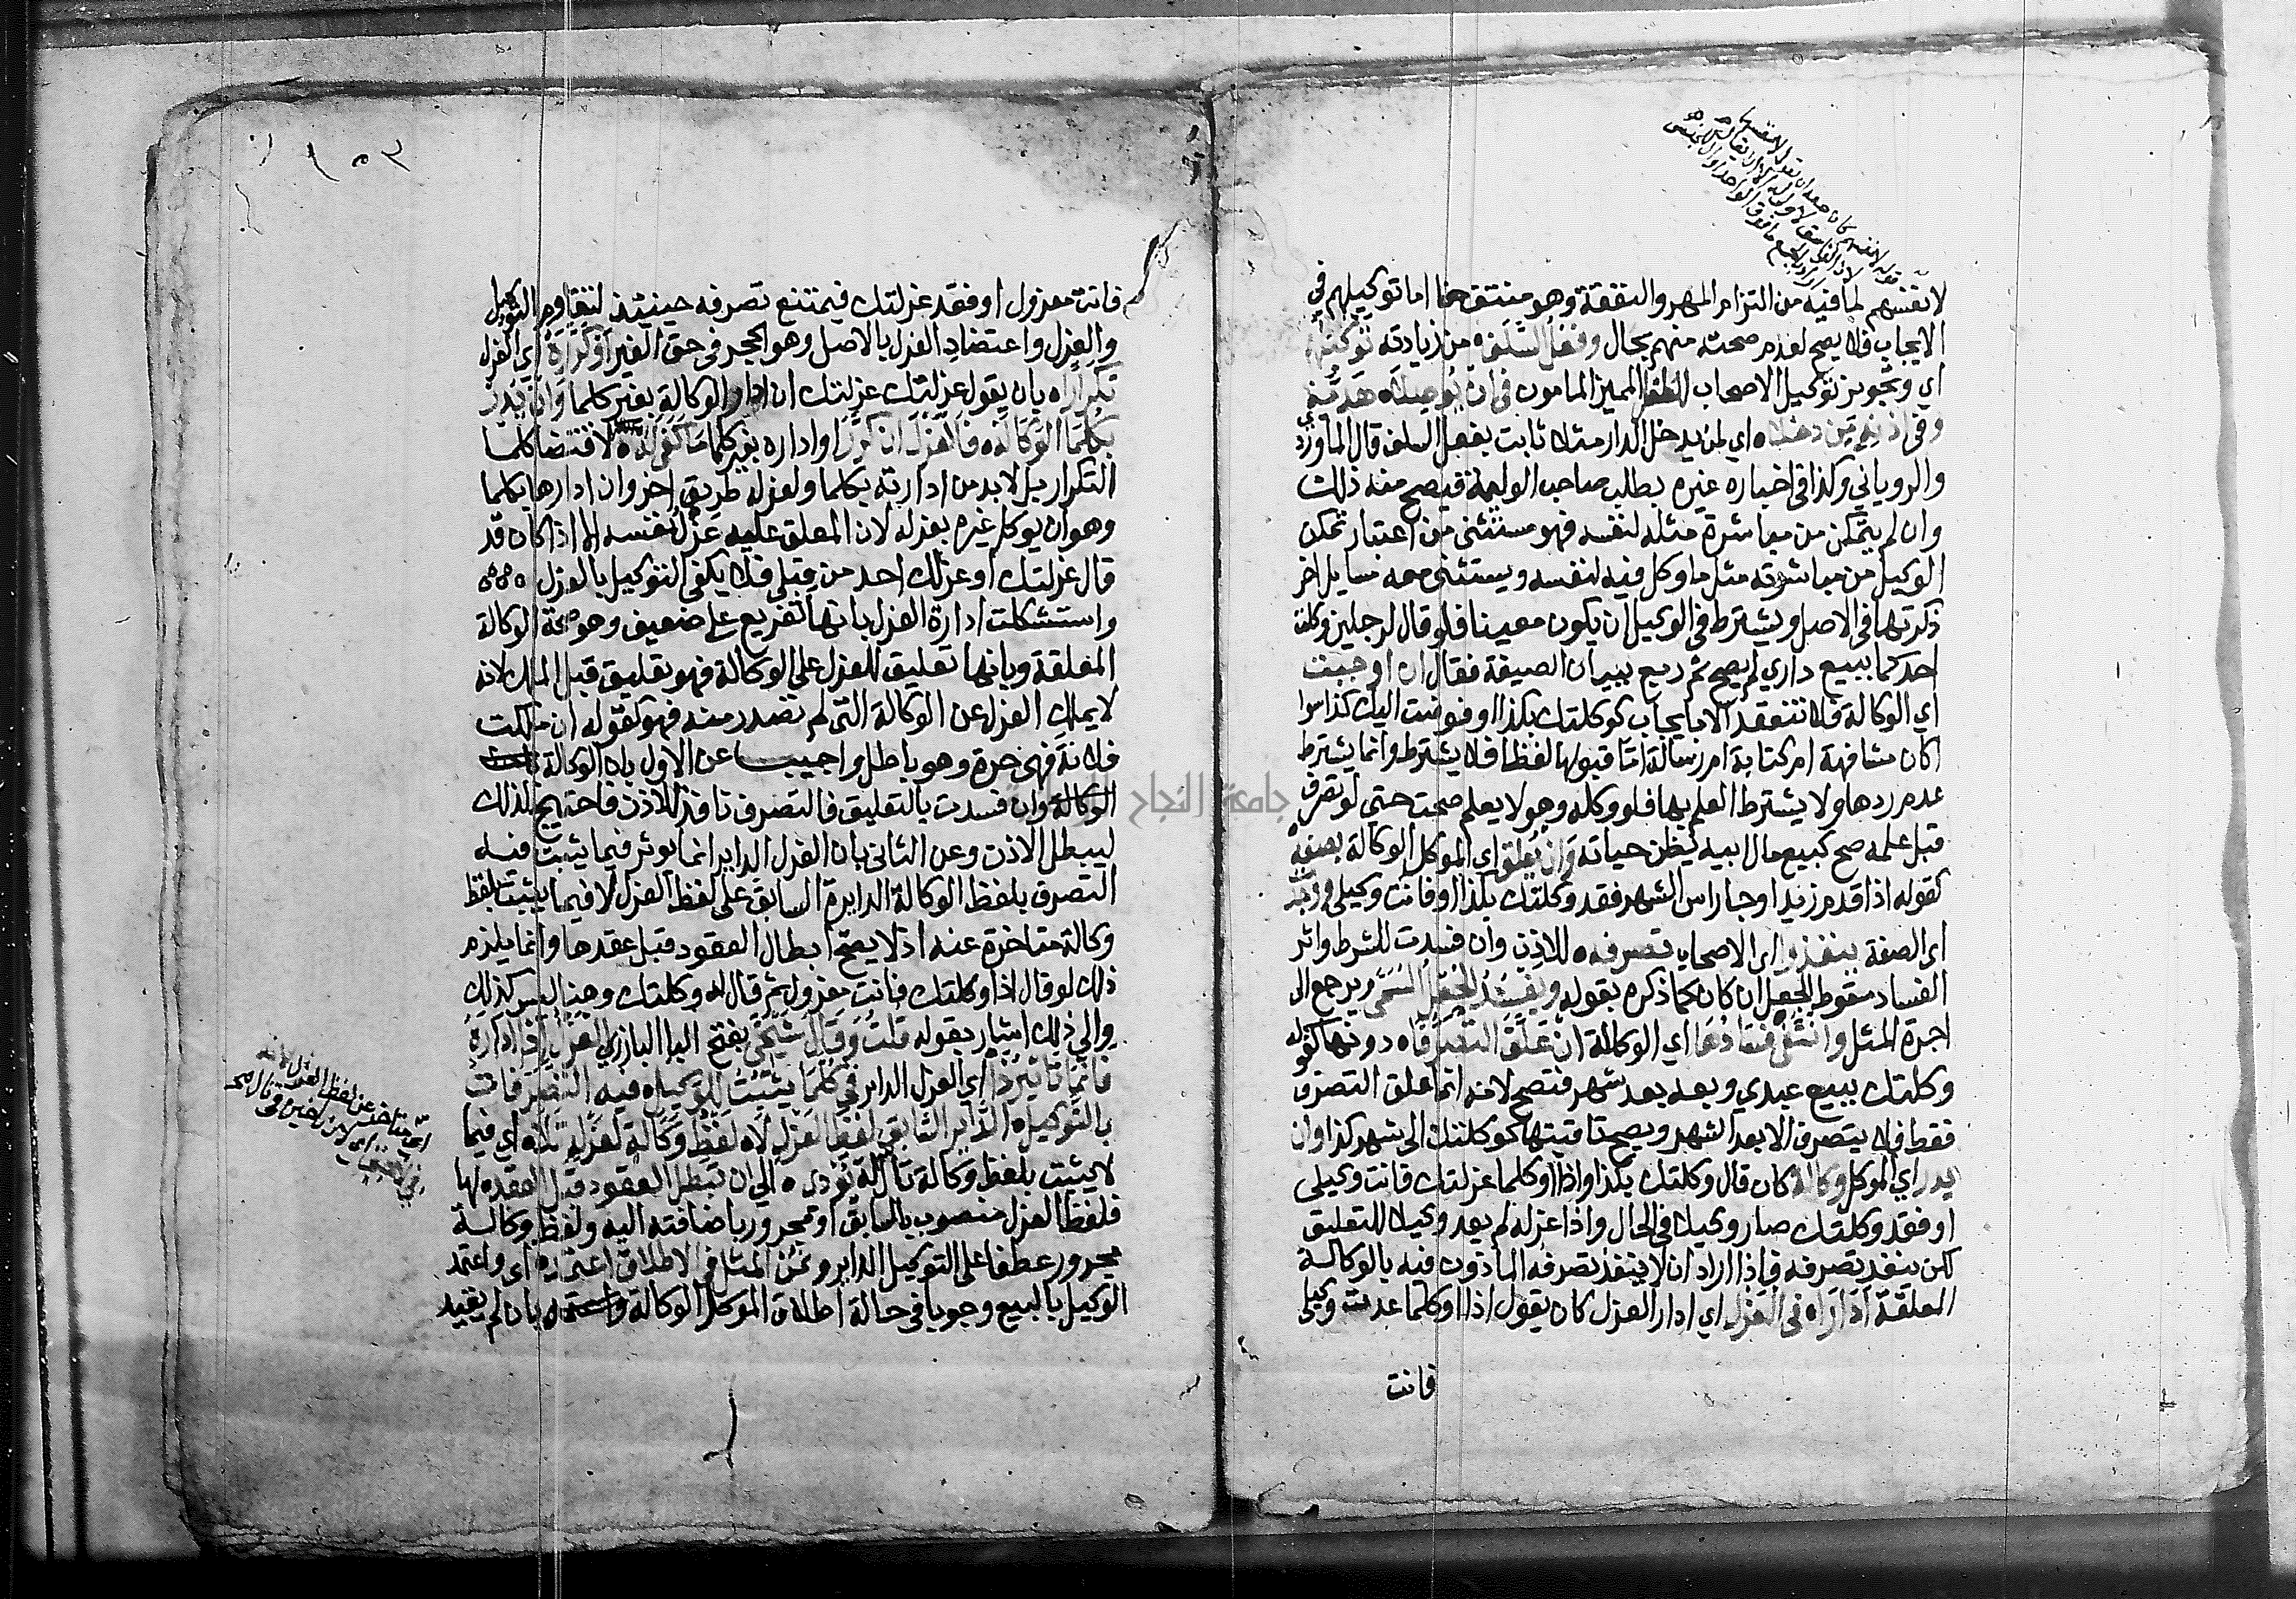 لانفسهم لما فيه من التزام المهر والنفقة وهو منتف هنا اما توكيلهم في
الايجاب فلا يصح لعدم صحته منهم بحال وفعل السلف من زيادته توكيلهم
اي وتجويز توكيل الاصحاب الطفل المميز المامون في ان يوصله هدية
وفي اذنه من دخلاه اي لمن يدخل الدار مثلا ثابت بفعل السلف قال الماوردي
والروياني وكذا في اخباره غيره بطلب صاحب الوليمة فيصح منه ذلك
وان لم يتمكن من مباشرة مثله لنفسه فهو مستثنى من اعتبار تمكن
الوكيل من مباشرته مثل ما وكل فيه لنفسه ويستثنى معه مسايل اخر
ذكرتها في الاصل ويشترط في الوكيل ان يكون معينا فلو قال لرجلين وكلت
احدكما ببيع داري لم يصح ثم ربع ببيان الصيغة فقال ان اوجبت
اي الوكالة فلا تنعقد الا بايجاب كوكلتك بكذا او فوضت اليك كذا سوا
اكان مشافهة ام كتابة ام رسالة اما قبولها لفظا فلا يشترط وانما يشترط
عدم ردها ولا يشترط العلم بها فلو وكله وهو لا يعلم صحت حتى لو تصرف
قبل علمه صح كبيع مال ابيه يظن حياته وان يعلق اي الموكل الوكالة بصفة
كقوله اذا قدم زيد او جا راس الشهر فقد وكلتك بكذا او فانت وكيلي فوجد
اي الصفة ينفذوا اي الاصحاب تصرفه للاذن وان فسدت للشرط واثر
الفساد سقوط الجعل ان كان كما ذكره بقوله ويفسد الجعل المسمى ويرجع الى
اجرة المثل وانتفى فسادها اي الوكالة ان علق التصرفاه دونها كقوله
وكلتك ببيع عبدي وبعه بعد شهر فتصح لانه انما علق التصرف
فقط فلا يتصرف الا بعد الشهر ويصح تاقيتها كوكلتك الى شهر كذا وان
يدر اي الموكل وكالة كان قال وكلتك بكذا واذا او كلما عزلتك فانت وكيلي
او فقد وكلتك صار وكيلا في الحال واذا عزله لم يعد وكيلا للتعليق
لكن ينفذ تصرفه فاذا اراد ان لا ينفذ تصرفه الماذون فيه بالوكالة
المعلقة اداراه في العزل اي ادار العزل كان يقول اذا او كلما عدت وكيلي
فانت
١٥٣
فانت معزول او فقد عزلتك فيمتنع تصرفه حينئذ لتقاوم التوكيل
والعزل واعتضاد العزل بالاصل وهو الحجر في حق الغير او كرره اي العزل
تكراراه بان يقول عزلتك عزلتك ان ادار الوكالة بغير كلما وان يدر
بكلما الوكالة فالعزل ان كرر او اداره بغير كلما ما كفى لاقتضا كلما
التكرار بل لا بد من ادارته بكلما ولعزله طريق اخر وان ادارها بكلما
وهو ان يوكل غيره بعزله لان المعلق عليه عزل نفسه الا اذا كان قد
قال عزلتك او عزلك احد من قبلي فلا يكفي التوكيل بالعزل
واستشكلت ادارة العزل بانها تفريع على ضعيف وهو صحة الوكالة
المعلقة وبانها تعليق للعزل على الوكالة فهو تعليق قبل الملك لانه
لا يملك العزل عن الوكالة التي لم تصدر منه فهو كقوله ان ملكت
فلانة فهي حرة وهو باطل واجيب عن الاول بان الوكالة
الوكالة وان فسدت بالتعليق فالتصرف نافذ للاذن فاحتيج لذلك
ليبطل الاذن وعن الثاني بان العزل الداير انما يوثر فيما يثبت فيه
التصرف بلفظ الوكالة الدايرة السابق على لفظ العزل لا فيما يثبت بلفظ
وكالة متاخرة عنه اذ لا يصح ابطال العقود قبل عقدها وانما يلزم
ذلك لو قال اذا وكلتك فانت معزول ثم قال له وكلتك وهنا ليس كذلك
والى ذلك اشار بقوله قلت وقال شيخي بفتح البا البارزي العزل اذ اداره
فانما تاثير ذا اي العزل الداير في كلما يثبت للوكيل فيه التصرفات
بالتوكيل الداير السابق لفظ العزل لا لفظ وكالة لعزله تلاه اي فيما
لا يثبت بلفظ وكالة تالية تؤدى الى ان تبطل العقود قبل العقد لها
فلفظ العزل منصوب بالسابق او مجرور باضافته اليه ولفظ وكالة
مجرور عطفا على التوكيل الداير وثمن المثل في الاطلاق اعتبره اي واعتمد
الوكيل بالبيع وجوبا في حالة اطلاق الموكل الوكالة بان لم يقيد